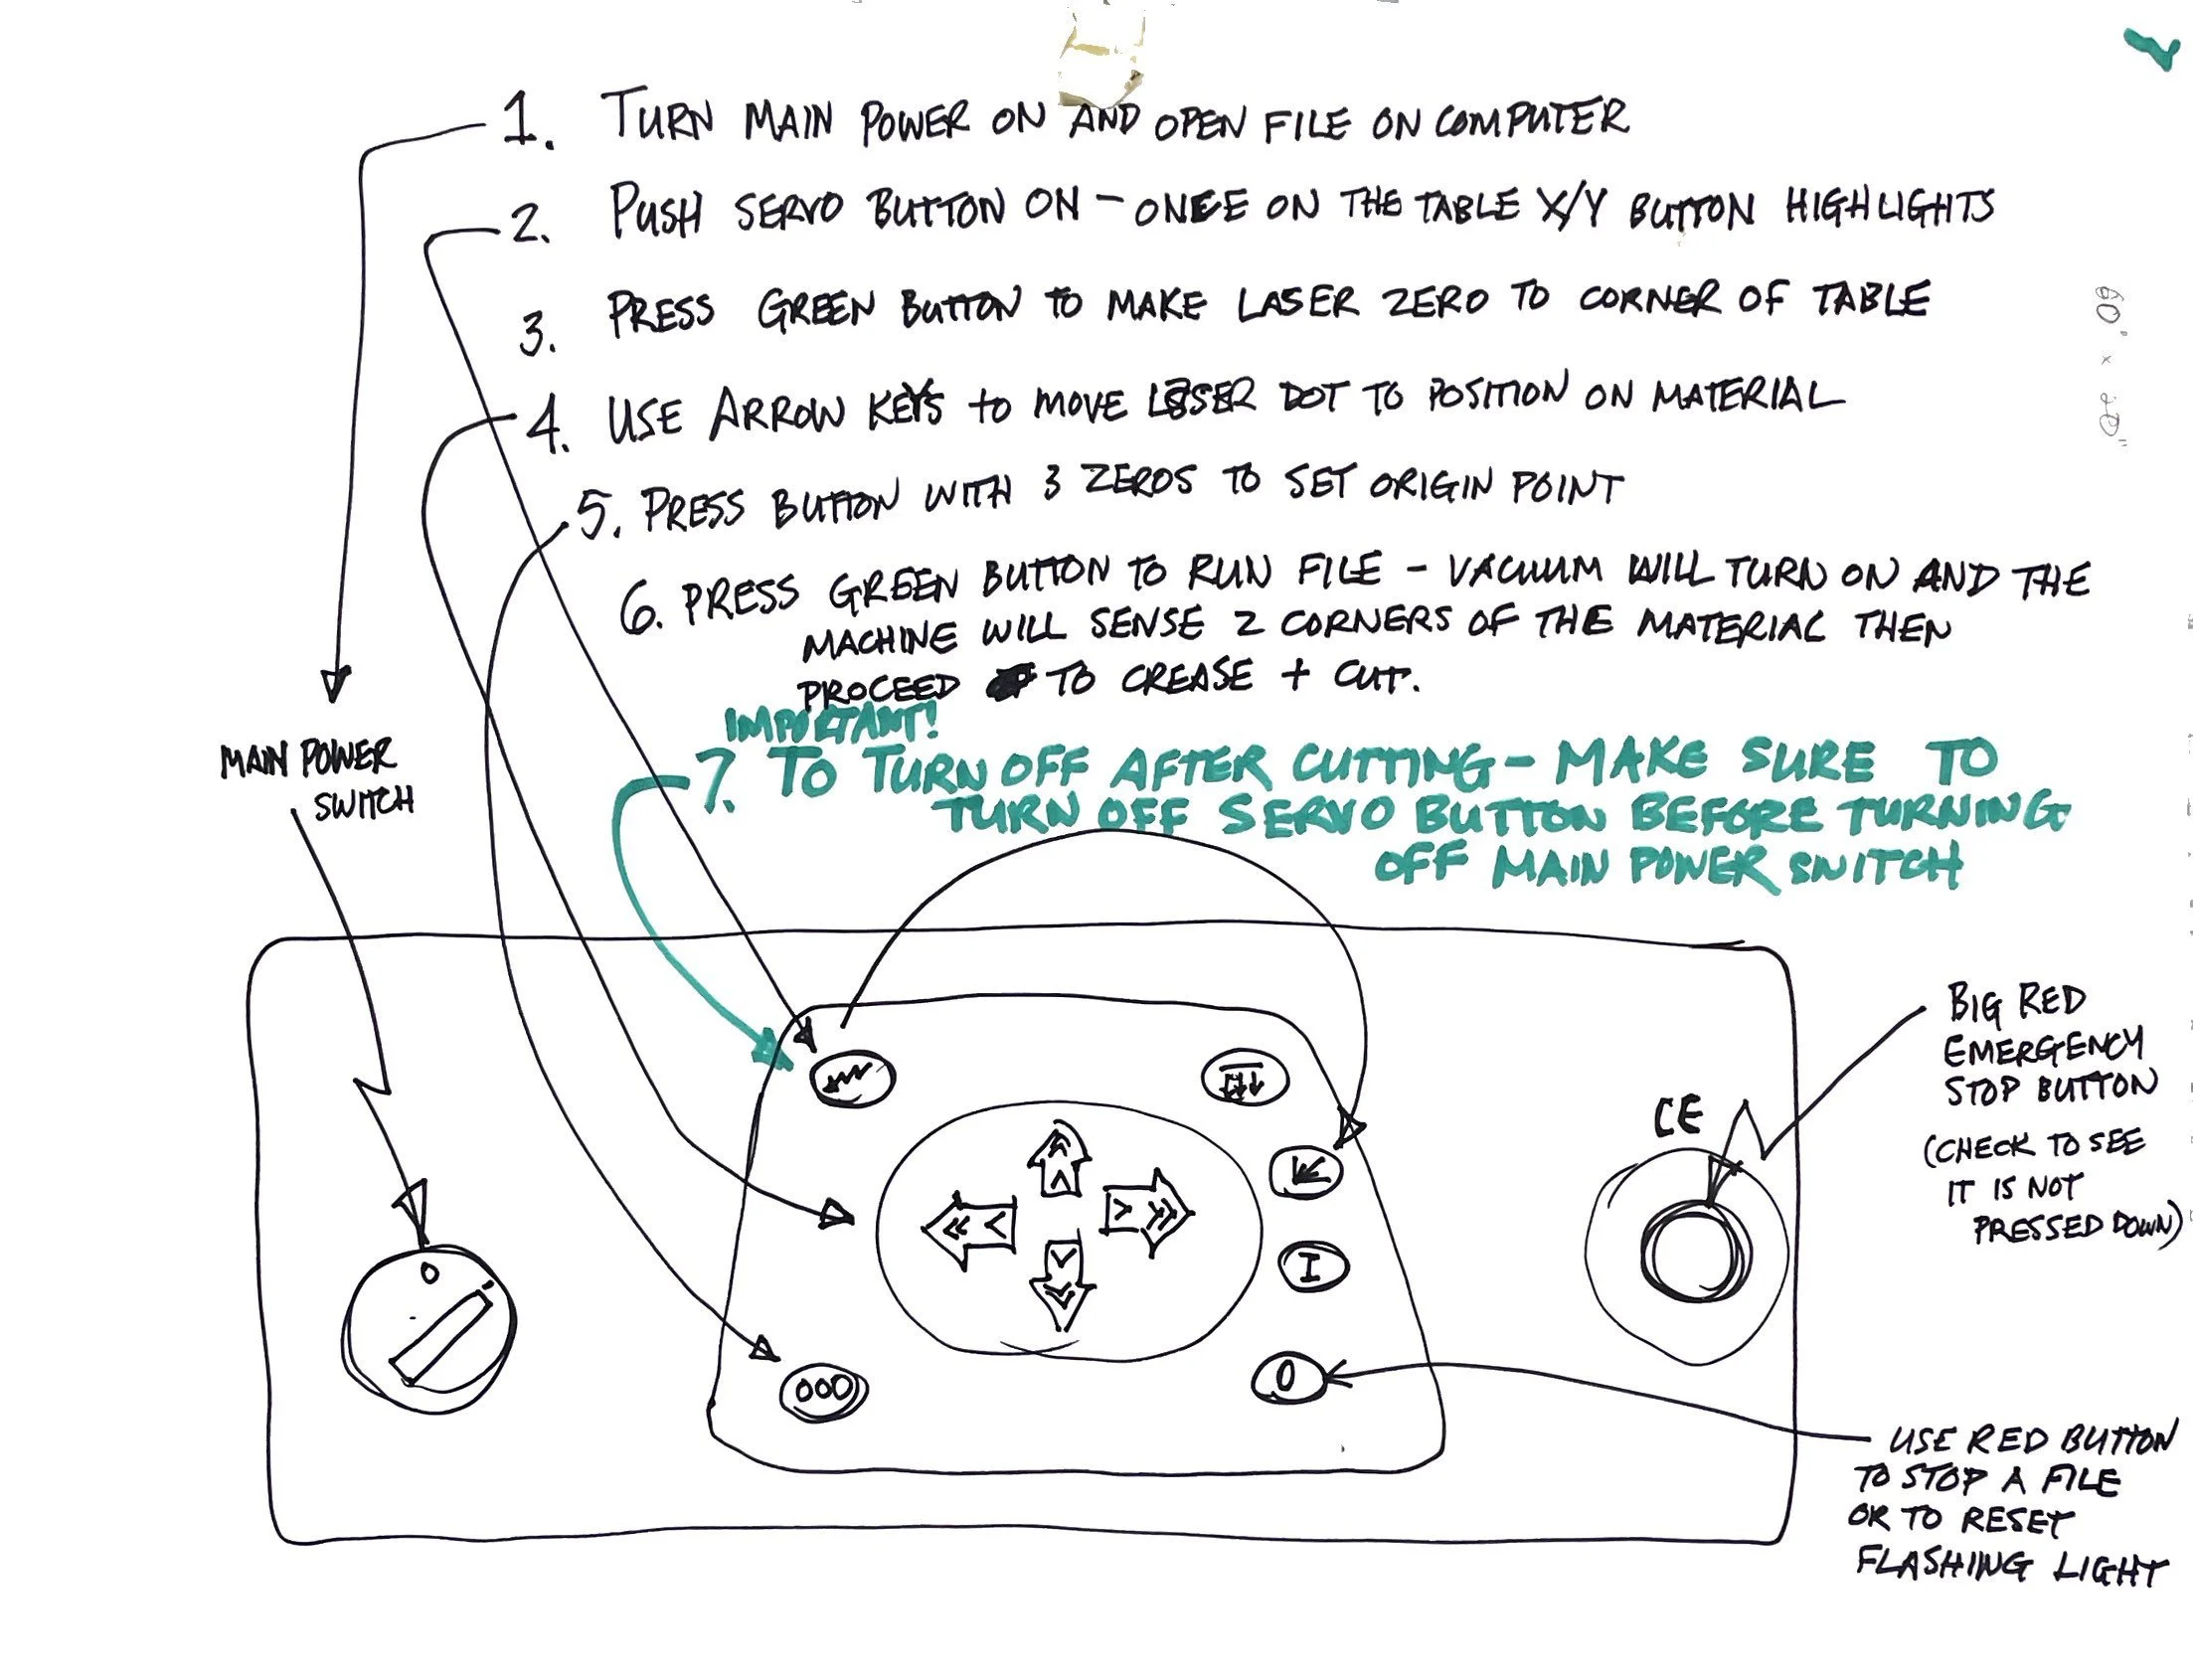 1. TURN MAIN POWER ON AND OPEN FILE ON COMPUTER
2. PUSH SERVO BUTTON ON - ONCE ON THE TABLE X/Y BUTTON HIGHLIGHTS
3. PRESS GREEN BUTTON TO MAKE LASER ZERO TO CORNER OF TABLE
4. USE ARROW KEYS to MOVE LASER DOT TO POSITION ON MATERIAL
5. PRESS BUTTON WITH 3 ZEROS TO SET ORIGIN POINT
6. PRESS GREEN BUTTON TO RUN FILE - VACUUM WILL TURN ON AND THE
MACHINE WILL SENSE 2 CORNERS OF THE MATERIAL THEN
PROCEED TO CREASE + CUT.
IMPORTANT!
7. TO TURN OFF AFTER CUTTING - MAKE SURE TO
TURN OFF SERVO BUTTON BEFORE TURNING
OFF MAIN POWER SWITCH
MAIN POWER
SWITCH
BIG RED
EMERGENCY
STOP BUTTON
(CHECK TO SEE
IT IS NOT
PRESSED DOWN)
CE
I
O
000
0
USE RED BUTTON
TO STOP A FILE
OR TO RESET
FLASHING LIGHT